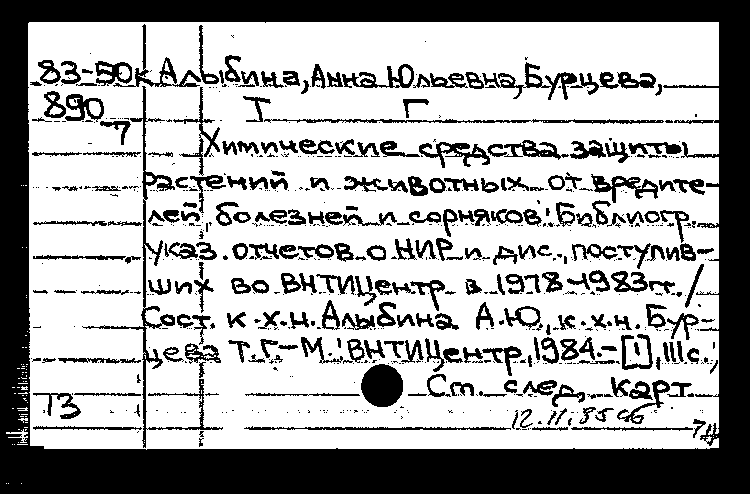 83-50к Алыбина, Анна Юльевна, Бурцева,
890 Т Г
-7
Химические средства защиты
растений и животных от вредите-
лей, болезней и сорняков: Библиогр.
указ. отчетов о НИР и дис., поступив-
ших во ВНТИЦентр в 1978-1983гг. /
Сост. к.х.н. Алыбина А.Ю., к.х.н. Бур-
цева Т.Г.-М.: ВНТИЦентр, 1984.-[1], 111с.;
См. след. карт.
13
12.11.85